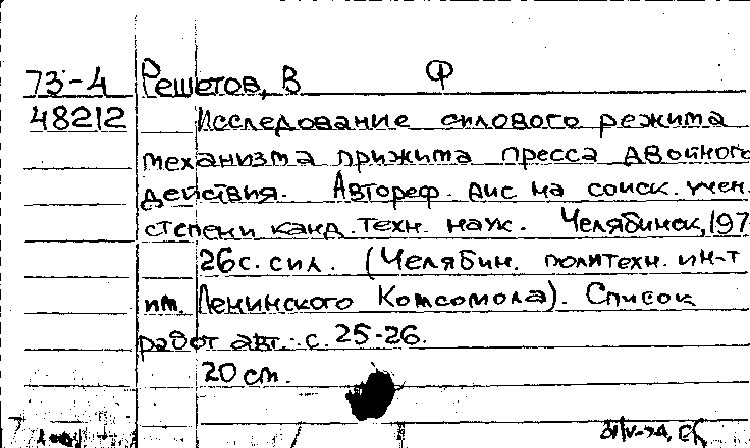 73-4 Решетов, В Ф
48212 Исследование силового режима
механизма прижима пресса двойного
действия. Автореф. дис на соиск. учен.
степени канд. техн. наук. Челябинск, 197
26 с. с ил. (Челябин. политехн. ин-т
им. Ленинского Комсомола). Список
работ авт.: с. 25-26.
20 см.